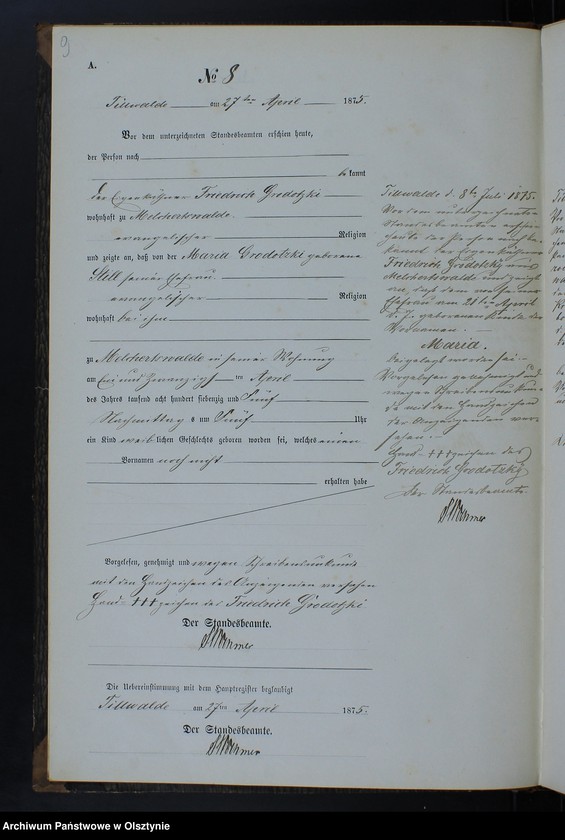 9
A.
No 8
Tillwalde am 27ten April 1875.
Vor dem unterzeichneten Standesbeamten erschien heute,
der Person nach
bekannt
der Eigenkäthner Friedrich Grodotzki
wohnhaft zu Melchertswalde
evangelischer Religion
und zeigte an, daß von der Maria Grodotzki geborene
Still seiner Ehefrau
evangelischer Religion
wohnhaft bei ihm
zu Melchertswalde in seiner Wohnung
am ein und zwanzigsten April
des Jahres tausend acht hundert siebenzig und fünf
Nachmittag s um fünf Uhr
ein Kind weiblichen Geschlechts geboren worden sei, welches einen
Vornamen noch nicht
erhalten habe
Vorgelesen, genehmigt und wegen Schreibensunkunde
mit den Handzeichen des Anzeigenden versehen
Hand- +++zeichen des Friedrich Grodotzki
Der Standesbeamte.
Die Uebereinstimmung mit dem Hauptregister beglaubigt
Tillwalde am 27ten April 1875.
Der Standesbeamte.
Tillwalde d. 8te Juli 1875.
Vor dem unterzeichneten
Standesbeamten erschien
heute der Person nach be-
kannt der Eigenkäthner
Friedrich Grodotzky aus
Melchertswalde und zeigte
an, daß dem von seiner
Ehefrau am 21ten April
d. J. geborenen Kinde der
Vornamen
Maria.
beigelegt worden sei.
Vorgelesen genehmigt und
wegen Schreibensunkun-
de mit den Handzeichen
des Anzeigenden ver-
sehen.
Hand- +++zeichen des
Friedrich Grodotzky
Der Standesbeamte.
Archiwum Państwowe w Olsztynie